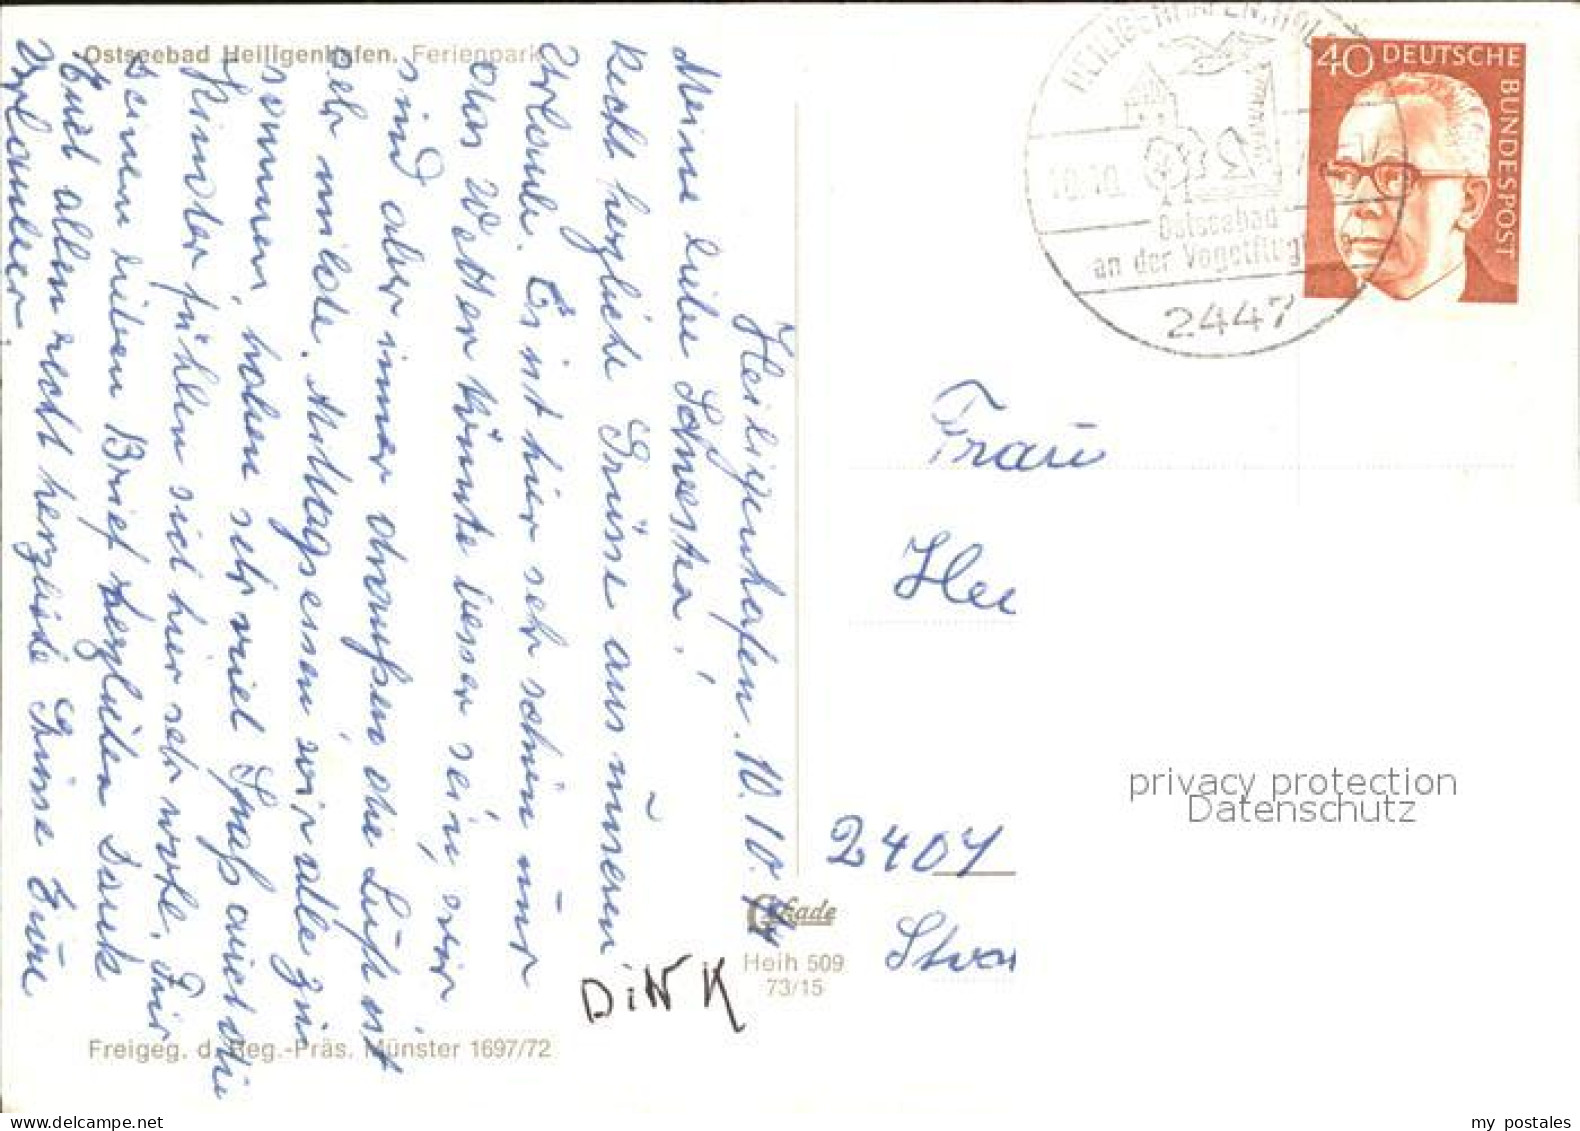 Ostseebad Heiligenhafen. Ferienpark
Heiligenhafen. 10. 10.
Meine liebe Schwester!
Recht herzliche Grüsse aus unseren
Urlaub. Es ist hier sehr schön nur
das Wetter könnte besser sein, wir
sind aber immer draußen die Luft ist
sehr milde. Mittagsessen wir alle zu
sammen, haben sehr viel Spaß auch die
Kinder fühlen sich hier sehr wohl. Für
Deinen lieben Brief herzlichen Dank
Euch allen recht herzliche Grüsse Eure
Freigeg. d. Reg.-Präs. Münster 1697/72
DiNK
Gekade
Heih 509
73/15
HEILIGENHAFEN, HOLST
10.10.
Ostseebad
an der Vogelflug
2447
40 DEUTSCHE
BUNDESPOST
Frau
Hei
2407
privacy protection
Datenschutz
my postales